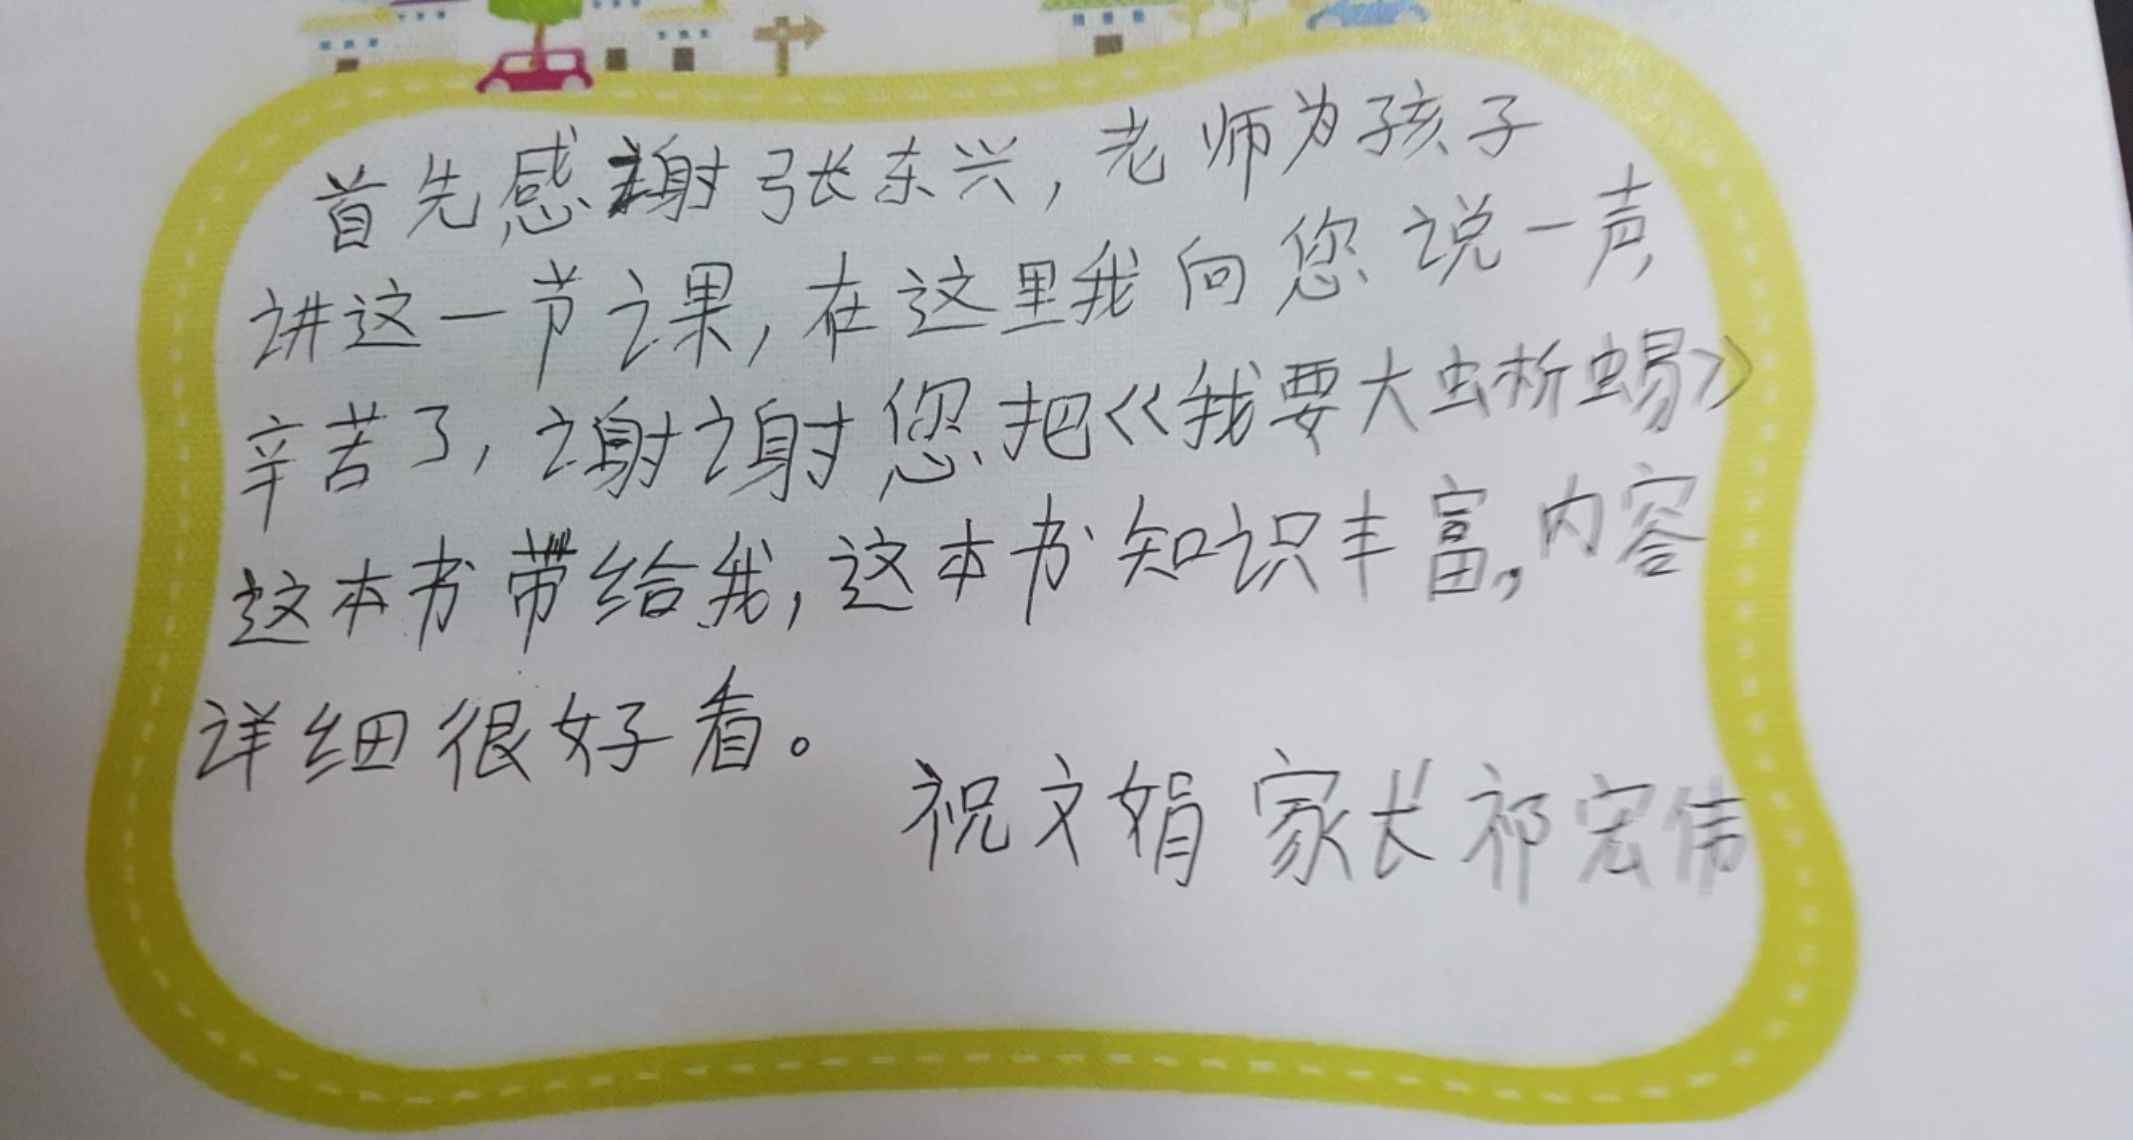 首先感谢张东兴，老师为孩子
讲这一节课，在这里我向您说一声，
辛苦了，谢谢您把《我要大蜥蜴》
这本书带给我，这本书知识丰富，内容
详细很好看。
祝文娟 家长祁宏伟